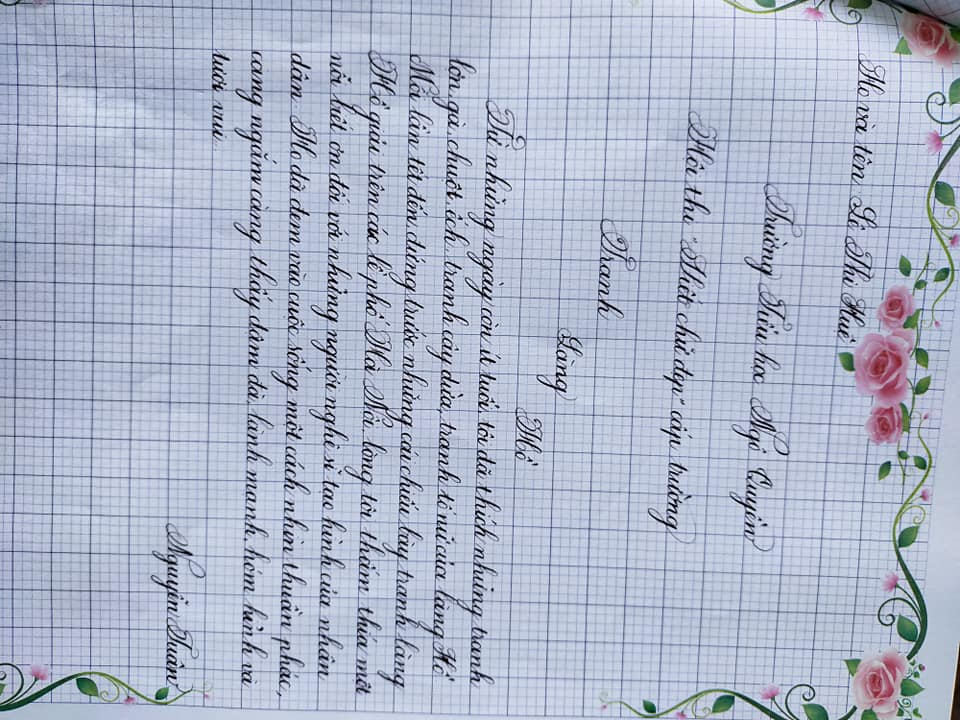 Họ và tên Lê Thị Huê
Trường Tiểu học Ngô Quyền
Hội thi "Viết chữ đẹp" cấp trường
Tranh
Làng
Hồ
Từ những ngày còn ít tuổi, tôi đã thích những tranh
lợn, gà, chuột, ếch, tranh cây dừa, tranh tố nữ của làng Hồ
Mỗi lần tết đến, đứng trước những cái chiếu bày tranh làng
Hồ giải trên các lề phố Hà Nội, lòng tôi thấm thía một
nỗi biết ơn đối với những người nghệ sĩ tạo hình của nhân
dân. Họ đã đem vào cuộc sống một cách nhìn thuần phác,
càng ngắm càng thấy đậm đà, lành mạnh, hóm hỉnh và
tươi vui.
Nguyễn Tuân